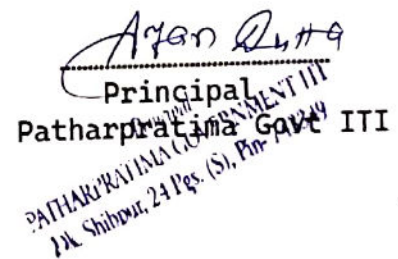 Ayan Dutta
Principal
Patharpratima Govt ITI
Principal
PATHARPRATIMA GOVERNMENT ITI
Shibpur, 24 Pgs. (S), Pin-